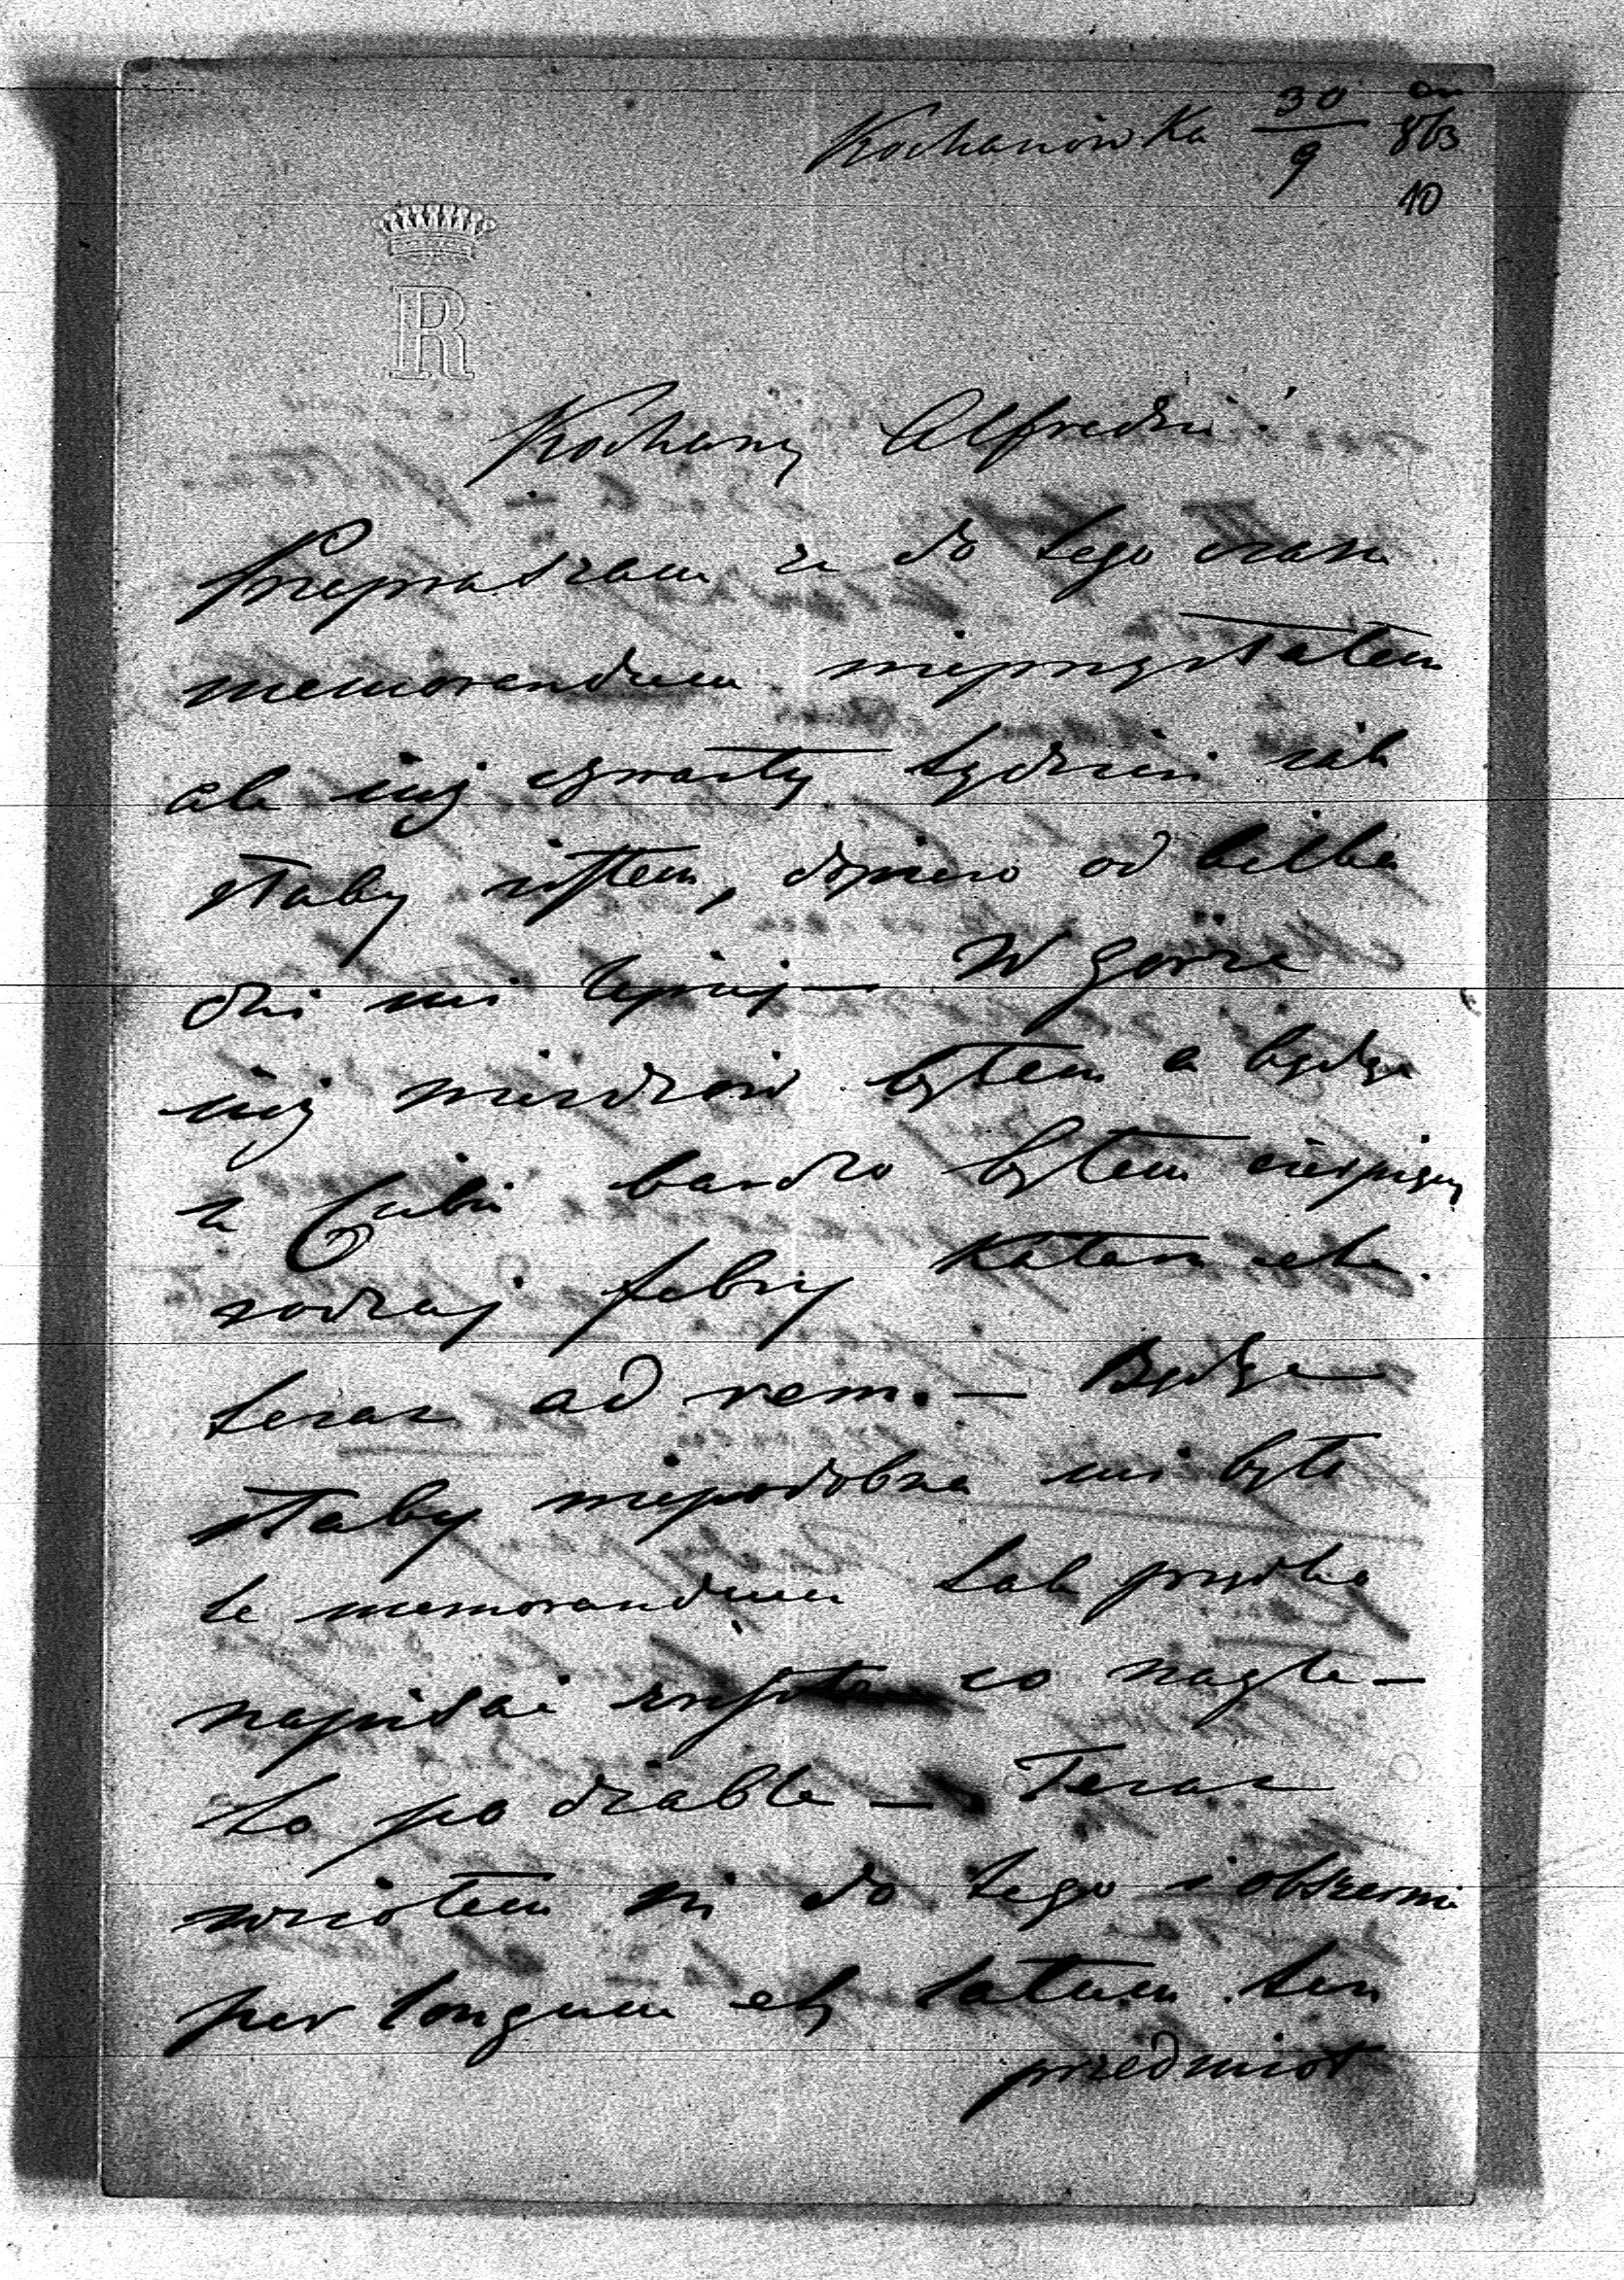 Kochanówka 30/9 863
10
R
Kochany Alfredzie!
Przepraszam że do tego czasu
memorandum nieprzysłałem
ale już czwarty tydzień jak
słaby jestem, dopiero od kilka
dni mi lepiej — W górze
już niezdrów byłem a będąc
u Ciebie bardzo byłem cierpiący
rodzaj febry Kataru etc.
teraz ad rem. — Będąc
słaby niepodobna mi było
te memorandum tak prędko
napisać co nagle —
to po diable — Teraz
wziołem się do tego i obszernie
per longum et latum ten
przedmiot